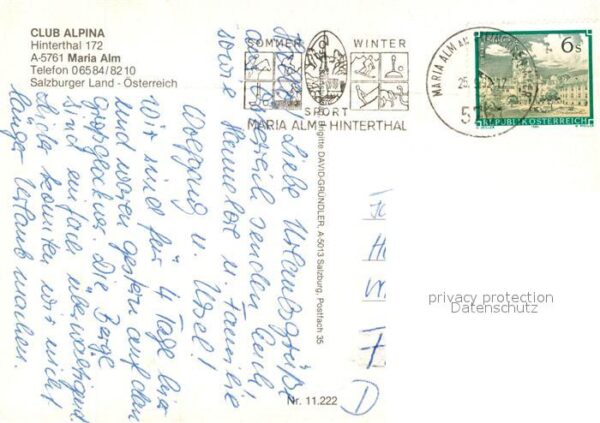 CLUB ALPINA
Hinterthal 172
A-5761 Maria Alm
Telefon 06584/8210
Salzburger Land - Österreich
SOMMER WINTER
SPORT
MARIA ALM - HINTERTHAL
MARIA ALM AM
25.
57
6 S
REPUBLIK ÖSTERREICH
Liebe Urlaubsgrüße
senden Euch
Wolfgang u. Usel!
sowie Hannelore u. Familie
Wir sind für 4 Tage hier
und waren gestern auf dem
Großglockner. Die Berge
sind einfach überwältigend.
Leider konnten wir nicht
länger Urlaub machen.
Brigitte DAVID-GRÜNDLER, A-5013 Salzburg, Postfach 35
Nr. 11.222
privacy protection
Datenschutz